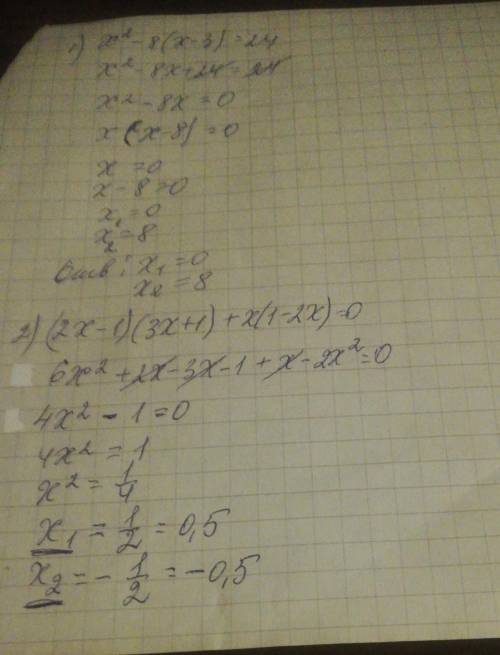 1) x² - 8(x-3) = 24
x² - 8x + 24 = 24
x² - 8x = 0
x(x-8) = 0
x = 0
x - 8 = 0
x₁ = 0
x₂ = 8
Отв: x₁ = 0
x₂ = 8
2) (2x-1)(3x+1) + x(1-2x) = 0
6x² + 2x - 3x - 1 + x - 2x² = 0
4x² - 1 = 0
4x² = 1
x² = 1/4
x₁ = 1/2 = 0,5
x₂ = - 1/2 = -0,5